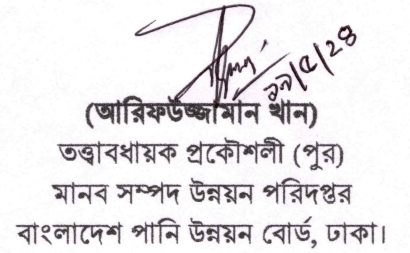 ২৯/৫/২৪
(আরিফউজ্জামান খান)
তত্ত্বাবধায়ক প্রকৌশলী (পুর)
মানব সম্পদ উন্নয়ন পরিদপ্তর
বাংলাদেশ পানি উন্নয়ন বোর্ড, ঢাকা।